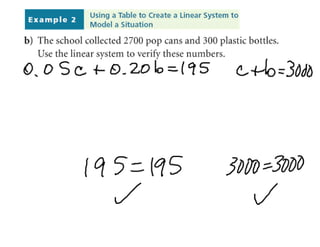 Example 2
Using a Table to Create a Linear System to
Model a Situation
b) The school collected 2700 pop cans and 300 plastic bottles.
Use the linear system to verify these numbers.
0.05c+0.20b=195 c+b=3000
195=195 3000=3000
✓ ✓